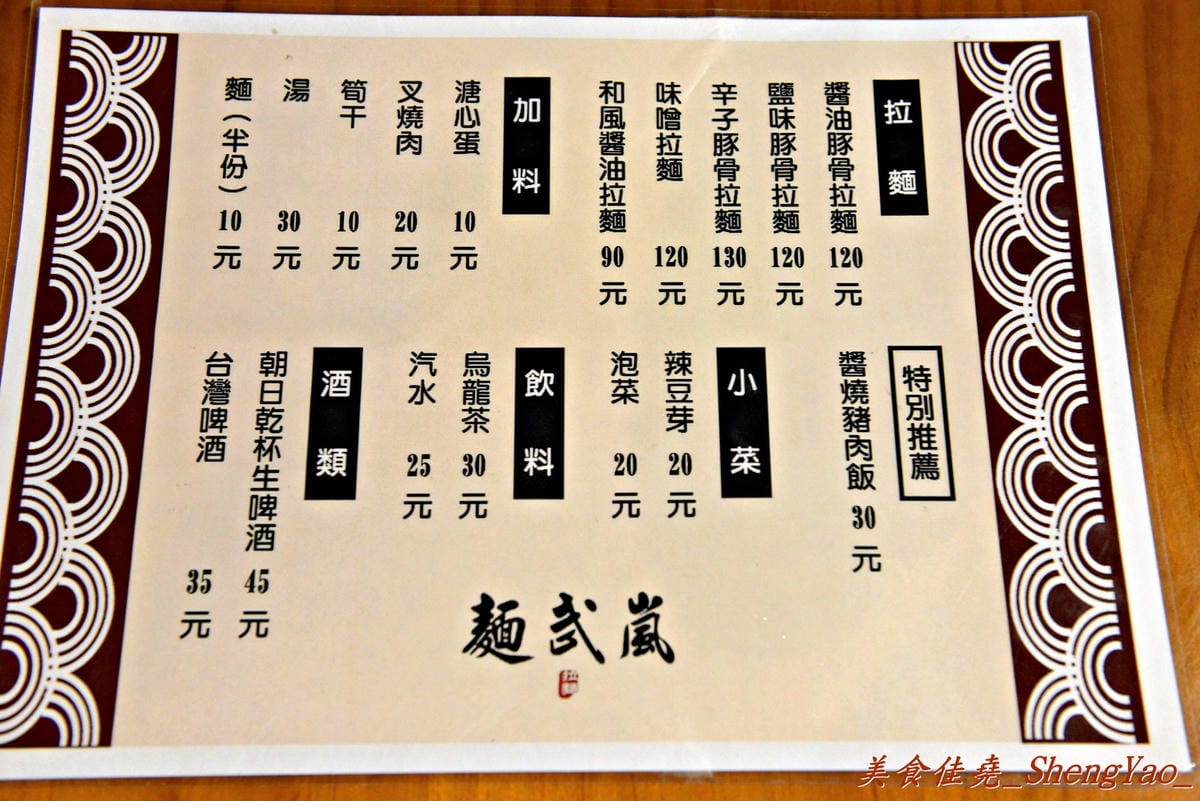 拉麵
醬油豚骨拉麵 120元
鹽味豚骨拉麵 120元
辛子豚骨拉麵 130元
味噌拉麵 120元
和風醬油拉麵 90元
加料
溏心蛋 10元
叉燒肉 20元
筍干 10元
湯 30元
麵(半份) 10元
特別推薦
醬燒豬肉飯 30元
小菜
辣豆芽 20元
泡菜 20元
飲料
烏龍茶 30元
汽水 25元
酒類
朝日乾杯生啤酒 45元
台灣啤酒 35元
嵐武麵
拉麵
美食佳堯_ShengYao_